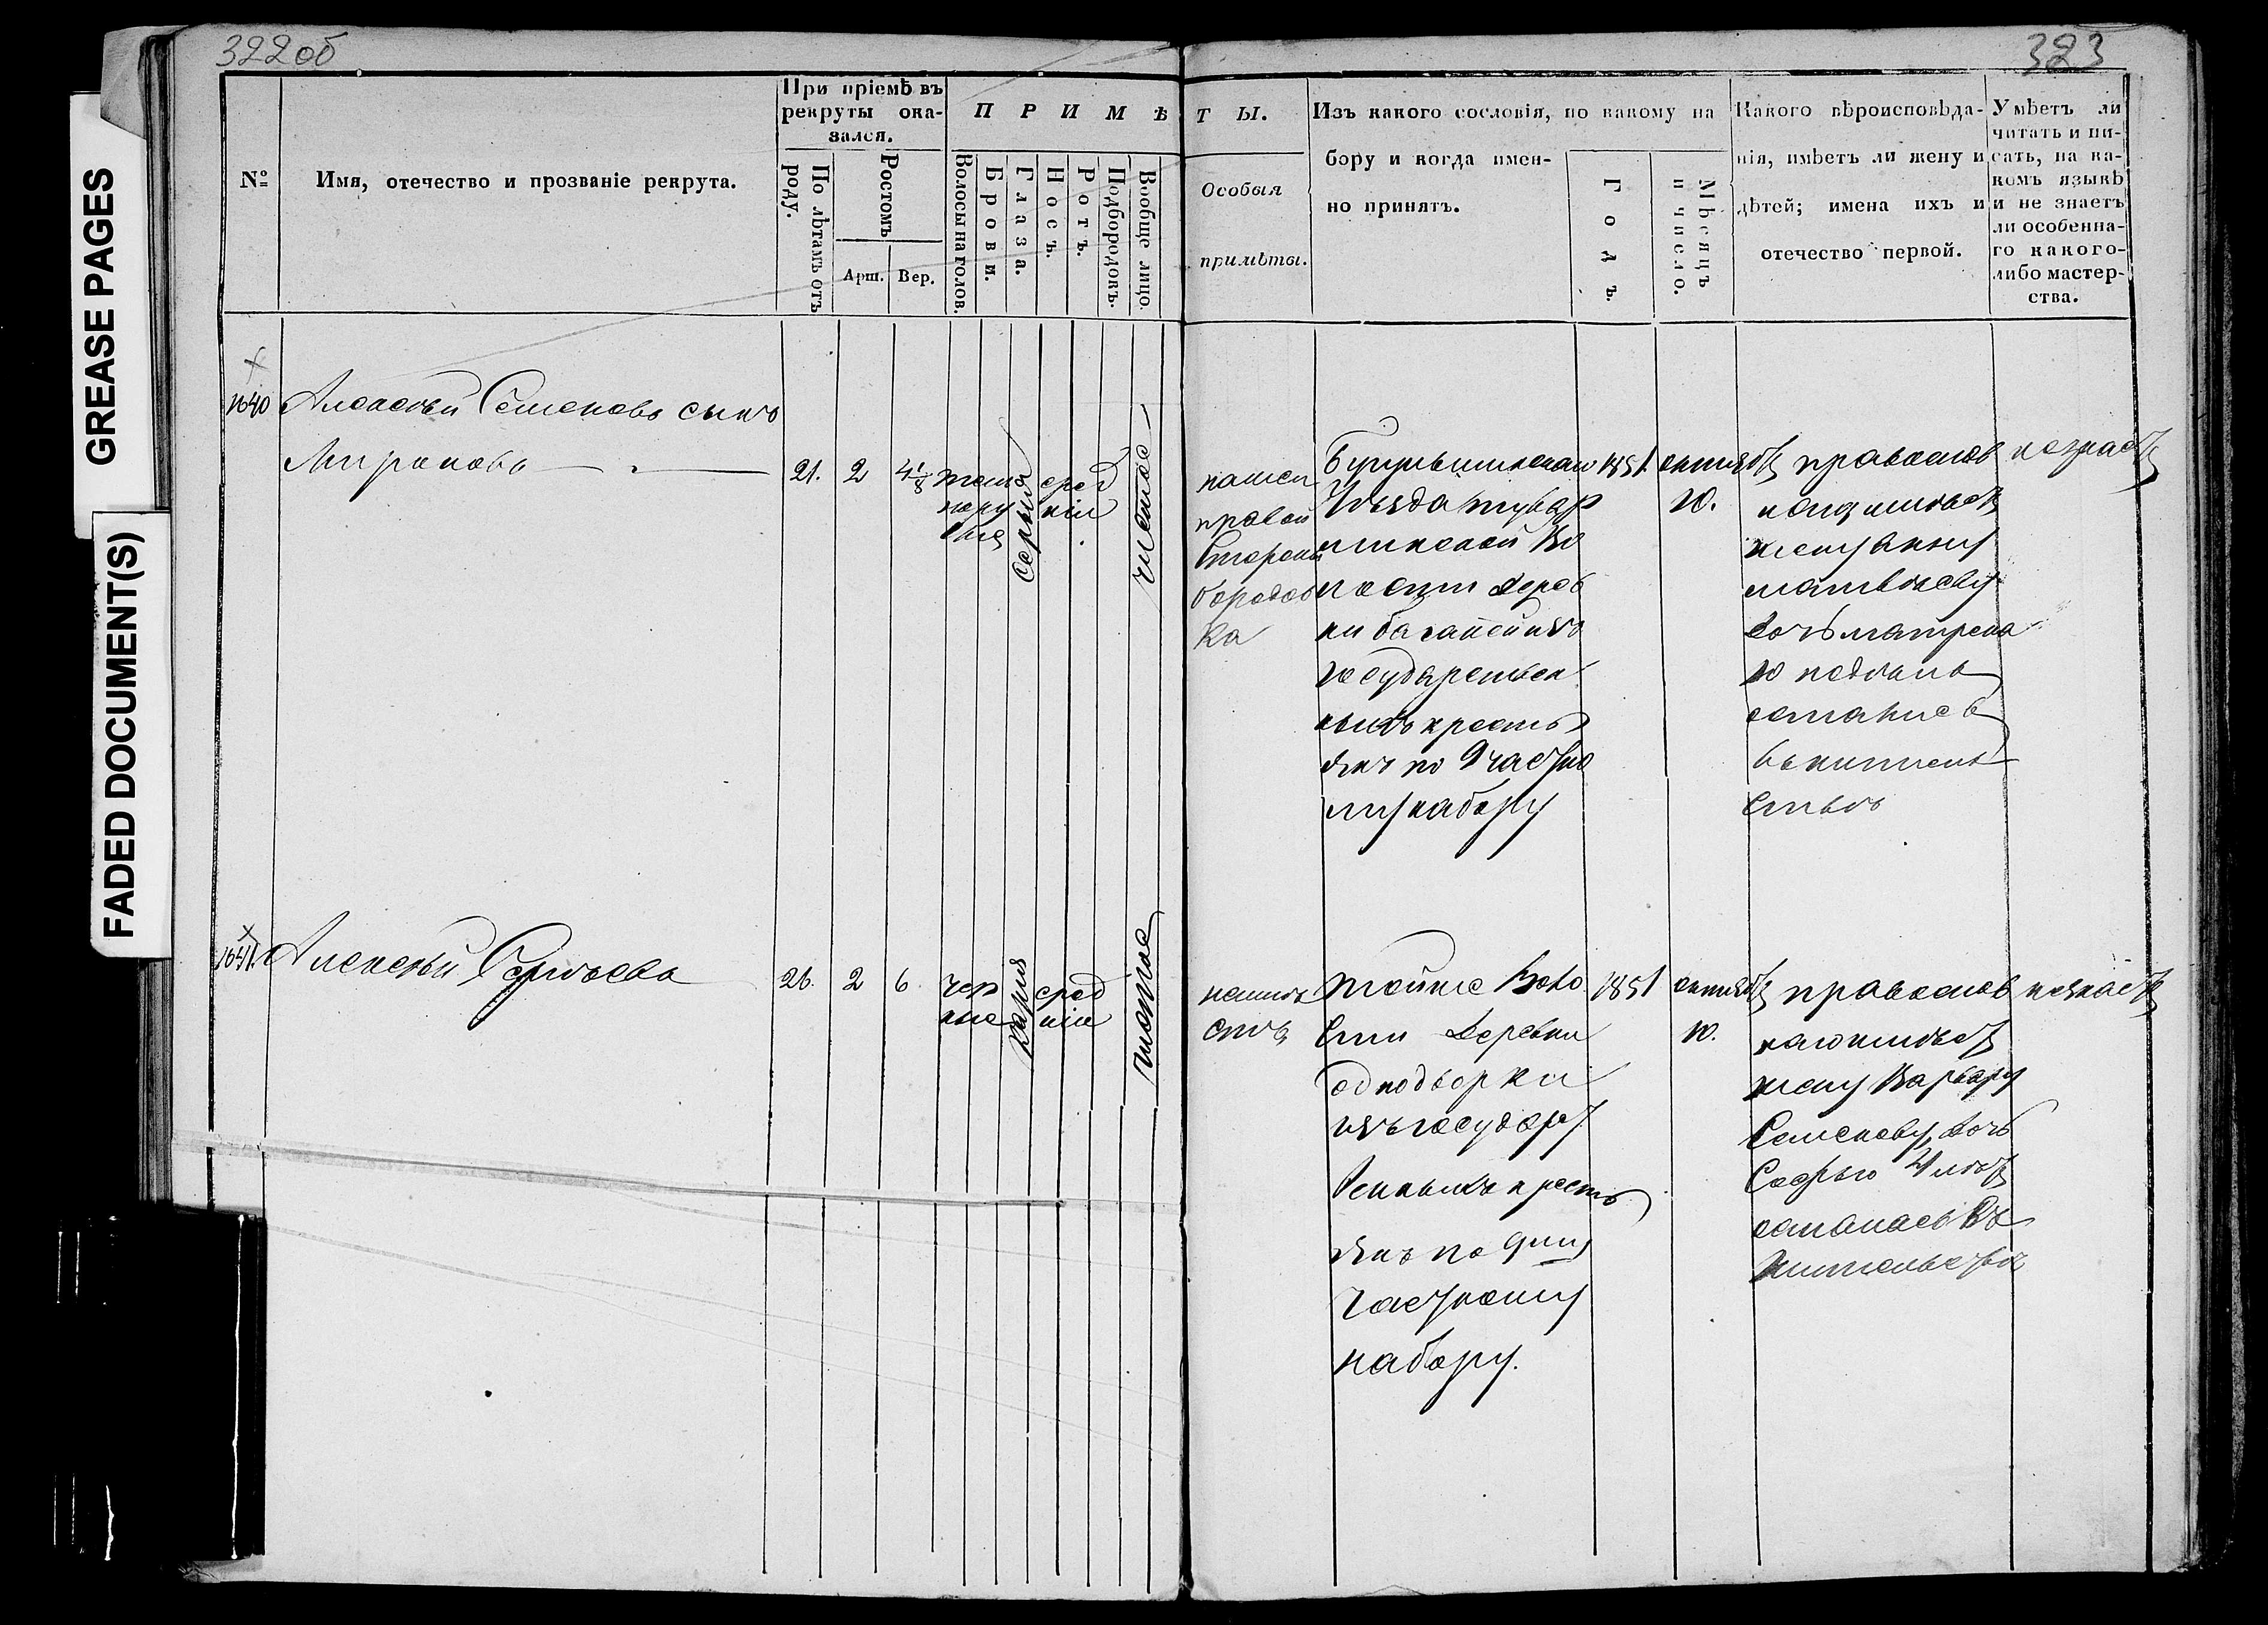 322 об
323
GREASE PAGES
FADED DOCUMENT(S)
№
Имя, отечество и прозваніе рекрута.
При пріемѣ въ
рекруты ока-
зался.
По лѣтамъ отъ
роду.
Ростомъ
Арш. Вер.
ПРИМѢ
Волосы на голов.
Брови.
Глаза.
Носъ.
Ротъ.
Подбородокъ.
Вообще лицо.
ТЫ.
Особыя
примѣты.
Изъ какого сословія, по какому на
бору и когда имен-
но принятъ.
Годъ.
Мѣсяцъ
и число.
Какого вѣроисповѣда-
нія, имѣетъ ли жену и
дѣтей; имена ихъ и
отечество первой.
Умѣетъ ли
читать и пи-
сать, на ка-
комъ языкѣ
и не знаетъ
ли особенна-
го какого-
либо мастер-
ства.
1640
Алексѣй Семеновъ сынъ
Мироновъ
21. 2 4 1/8
темно
рус
сѣрыя
сред
ніи
чистое
правой
стороны
бородав
ка
Бугульминскаго
Уѣзда
волости дерев
ни
государствен
ныхъ кресть
янъ по 9 частно
му набору
1851.
октябр
10.
православ
наго имѣет
жену Анну
Матвѣеву
дочь Матрена
10 недѣль
остались
въ жительст
ствѣ
не знает
1641.
Алексѣй Сергѣевъ
26. 2 6
чер
ные
карія
сред
ніи
чистое
неимѣ
етъ
Тойже Воло
сти Деревни
однодворки
изъ государ
ственныхъ кресть
янъ по 9му
частному
набору.
1851
октябр
10.
православ
наго имѣет
жену Варвару
Семенову, дочь
Софью 4 лѣт
остались въ
жительствѣ
не знает